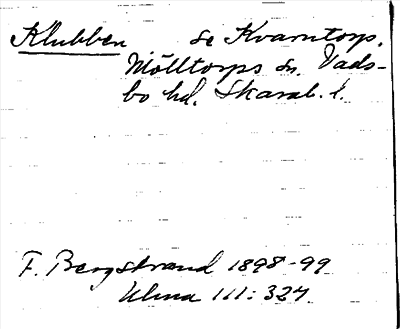 Klubben se Kvarntorp,
Mölltorps sn. Vads-
bo hd. Skarab. l.
F. Bergstrand 1898-99
Ulma 111: 324